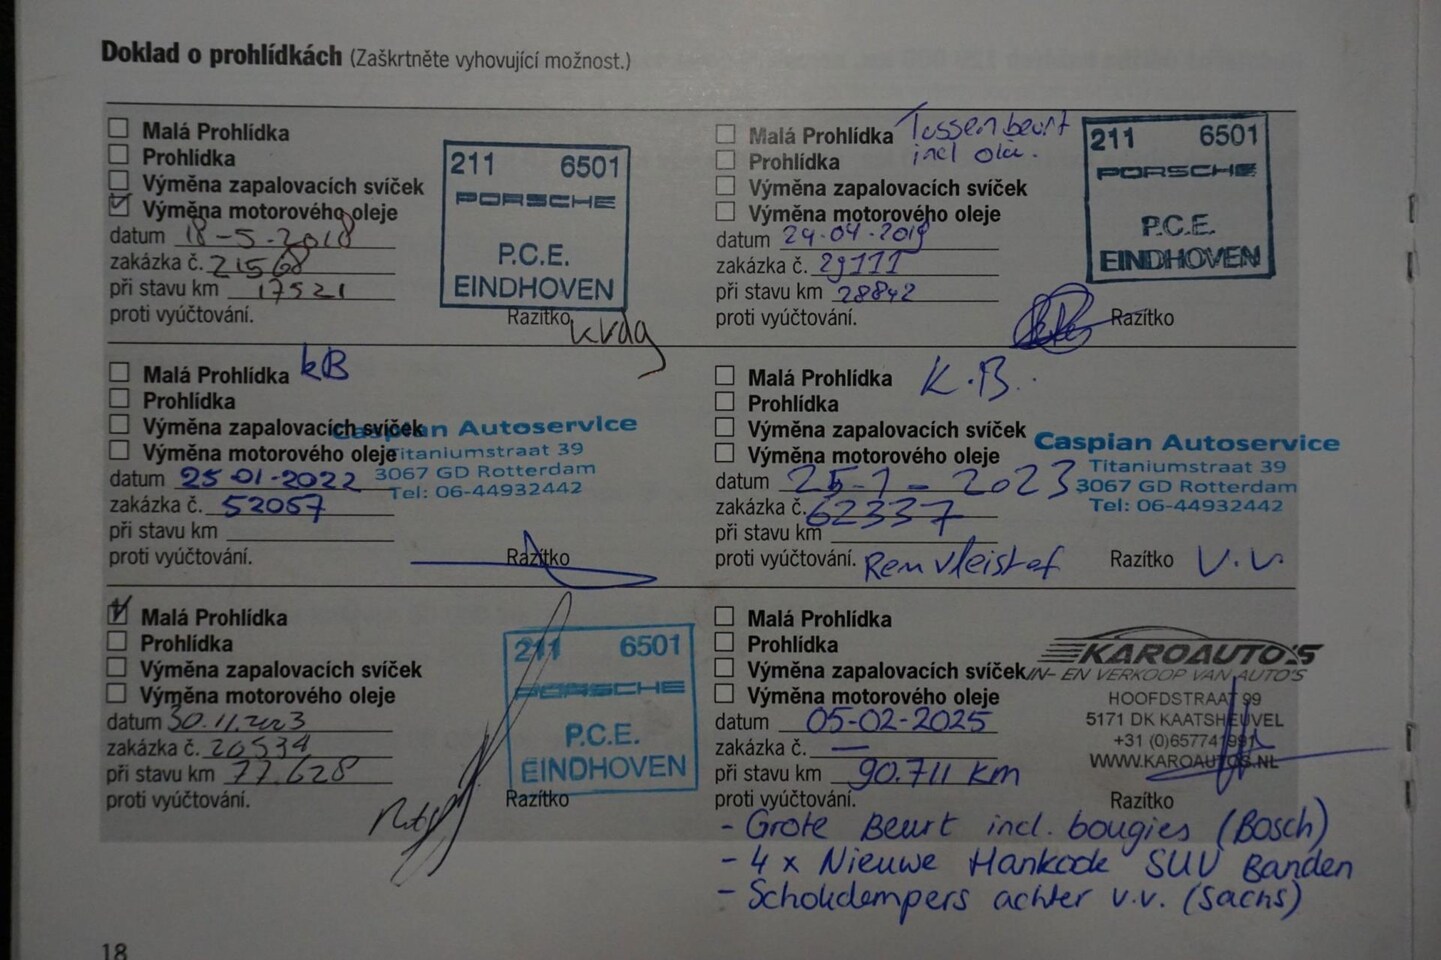 Doklad o prohlídkách (Zaškrtněte vyhovující možnost.)
Malá Prohlídka
Prohlídka
Výměna zapalovacích svíček
Výměna motorového oleje
datum 18-5-2018
zakázka č. 21568
při stavu km 17521
proti vyúčtování.
Razítko
211 6501
PORSCHE
P.C.E.
EINDHOVEN
Malá Prohlídka Tussenbeurt
Prohlídka incl olie.
Výměna zapalovacích svíček
Výměna motorového oleje
datum 24-04-2019
zakázka č. 29111
při stavu km 28842
proti vyúčtování.
Razítko
211 6501
PORSCHE
P.C.E.
EINDHOVEN
Malá Prohlídka kB
Prohlídka
Výměna zapalovacích svíček
Výměna motorového oleje
datum 25-01-2022
zakázka č. 52057
při stavu km
proti vyúčtování.
Razítko
Caspian Autoservice
Titaniumstraat 39
3067 GD Rotterdam
Tel: 06-44932442
Malá Prohlídka K.B.
Prohlídka
Výměna zapalovacích svíček
Výměna motorového oleje
datum 25-1-2023
zakázka č. 62337
při stavu km
proti vyúčtování. Remvleistof
Razítko V.V.
Caspian Autoservice
Titaniumstraat 39
3067 GD Rotterdam
Tel: 06-44932442
Malá Prohlídka
Prohlídka
Výměna zapalovacích svíček
Výměna motorového oleje
datum 30.11.2023
zakázka č. 20534
při stavu km 77.628
proti vyúčtování.
Razítko
211 6501
PORSCHE
P.C.E.
EINDHOVEN
Malá Prohlídka
Prohlídka
Výměna zapalovacích svíček
Výměna motorového oleje
datum 05-02-2025
zakázka č. —
při stavu km 90.711 km
proti vyúčtování.
Razítko
KAROAUTO'S
IN- EN VERKOOP VAN AUTO'S
HOOFDSTRAAT 99
5171 DK KAATSHEUVEL
+31 (0)657741991
WWW.KAROAUTOS.NL
- Grote Beurt incl. bougies (Bosch)
- 4 x Nieuwe Hankook SUV Banden
- Schokdempers achter v.v. (Sachs)
18